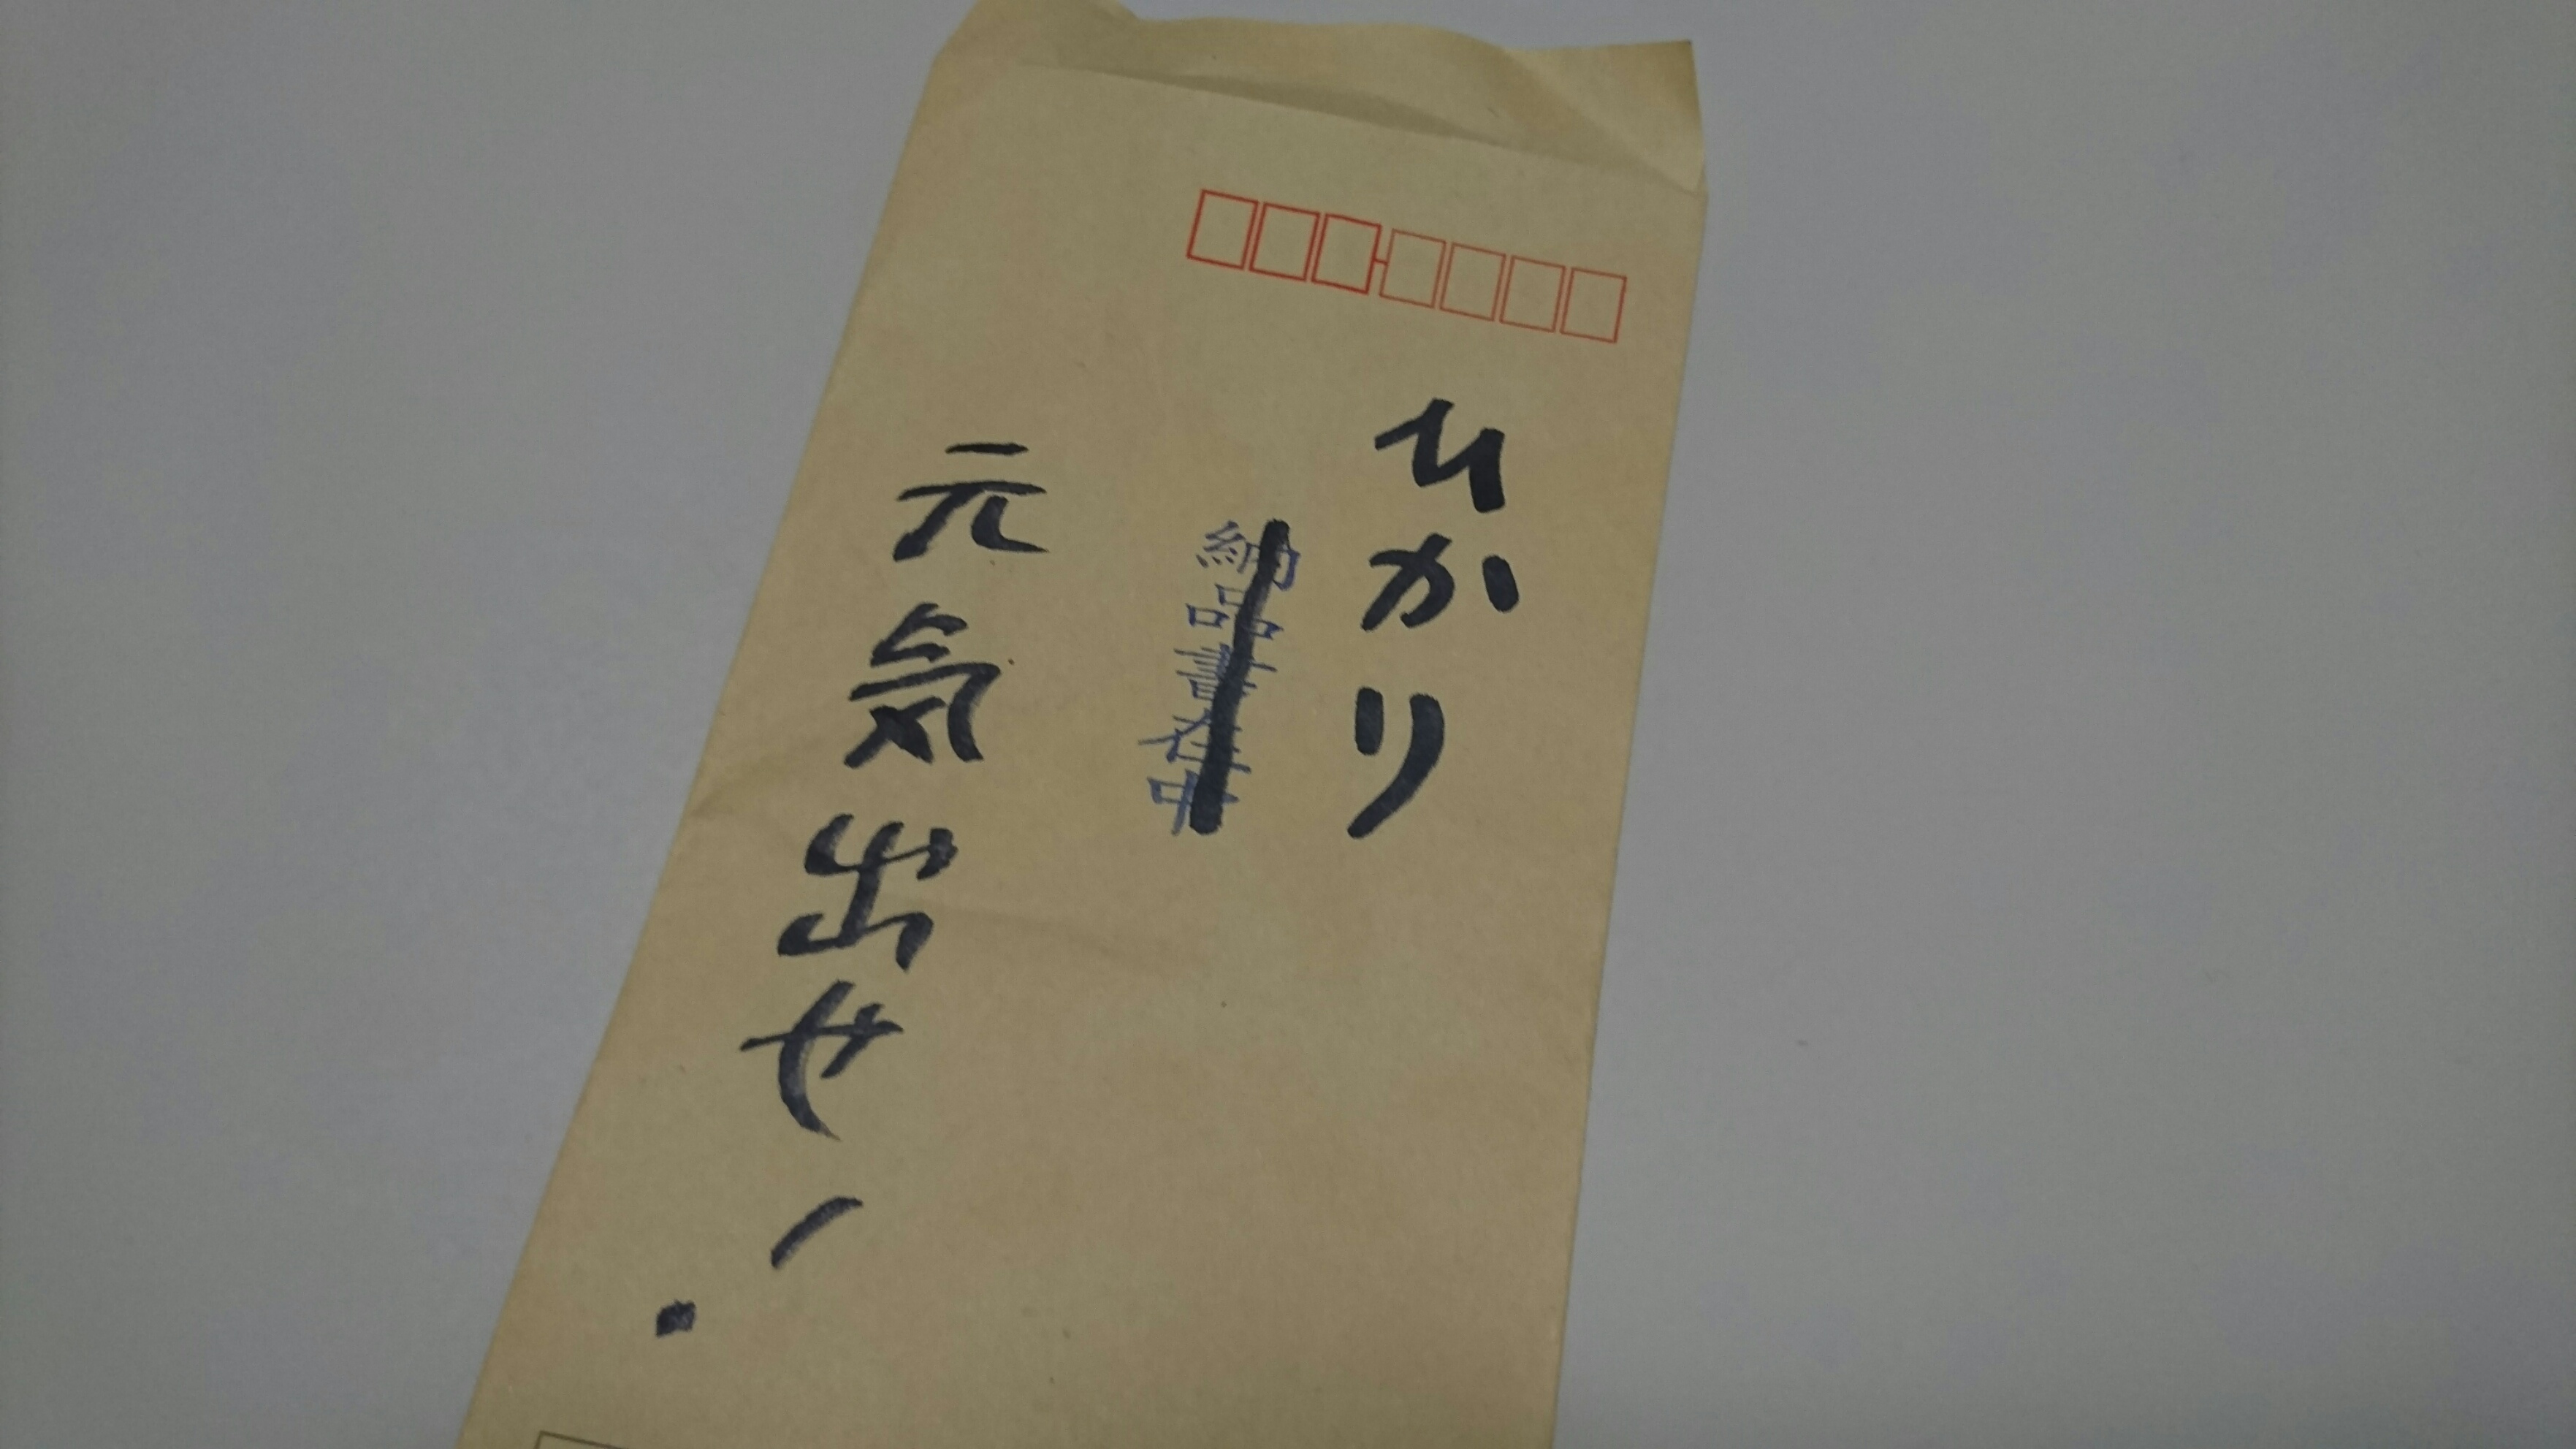 ひかり
納品書在中
元気出せ!